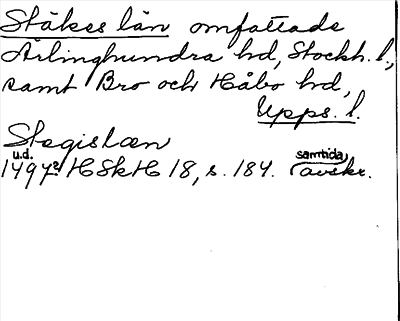 Stäkes län omfattade
Ärlinghundra hd, Stockh. l.,
samt Bro och Håbo hd,
Upps. l.
Stegislæn
u.d. samtida
1497? HSkH 18, s. 184. avskr.